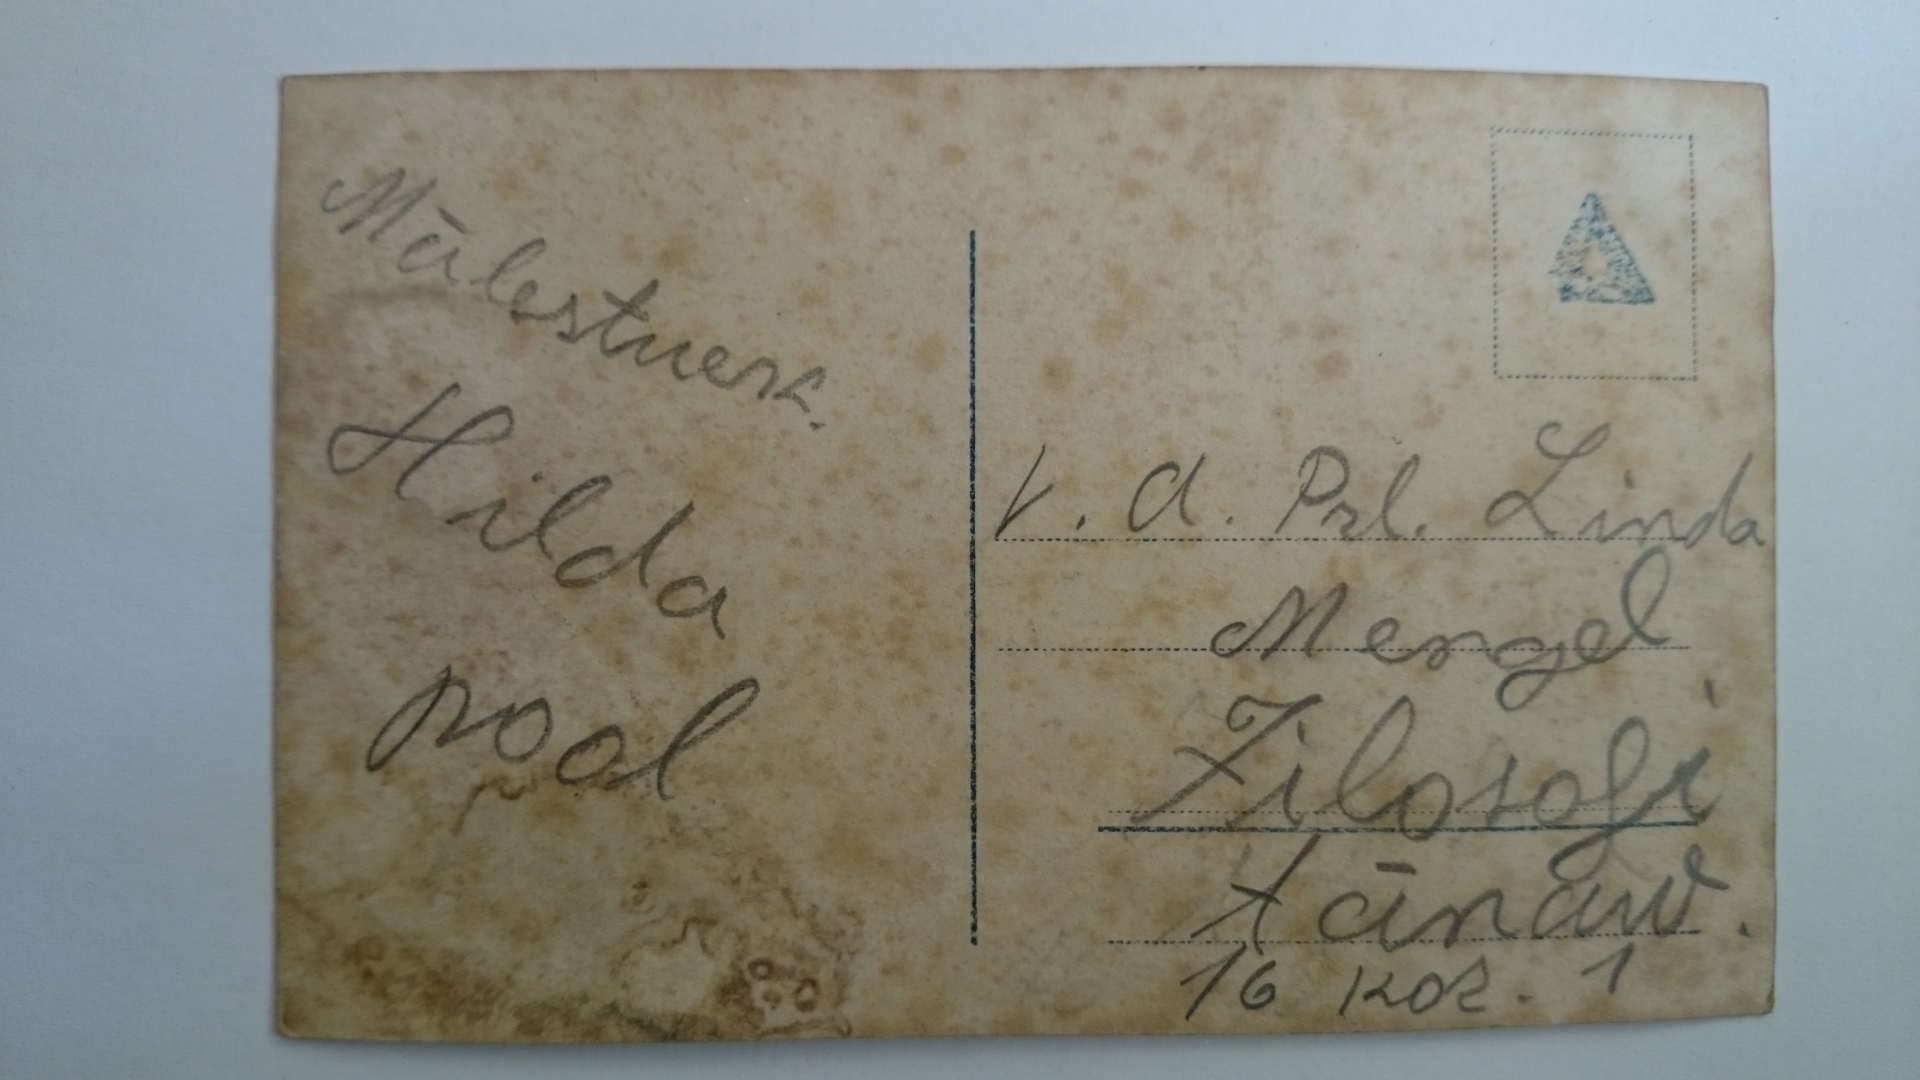 Mälestuesk.
Hilda
pool
V. A. Prl. Linda
Mengel
Filosofi
tänaw.
16 kor. 1